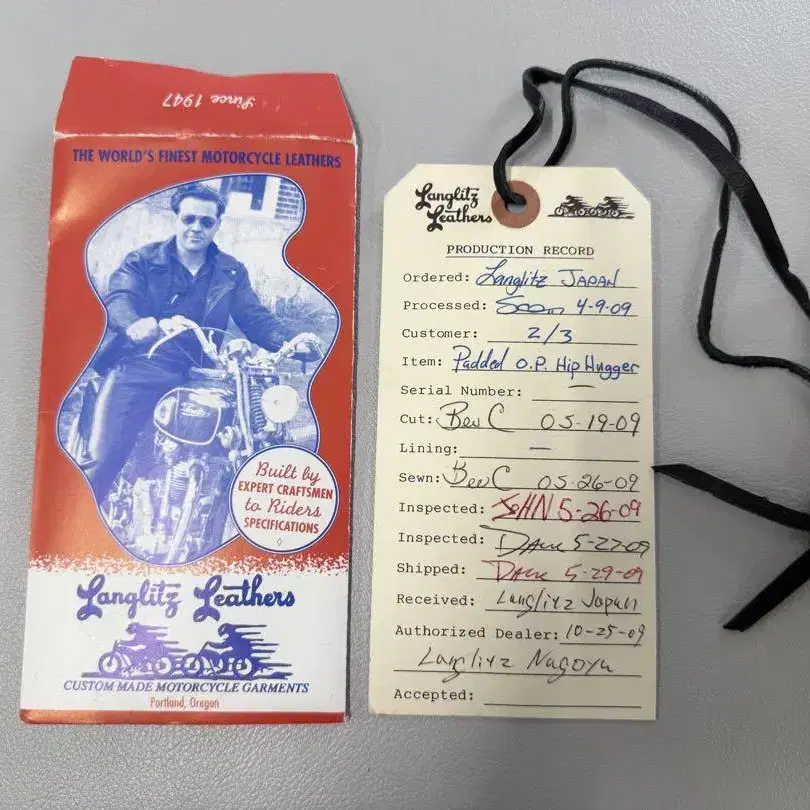 Since 1947
THE WORLD'S FINEST MOTORCYCLE LEATHERS
Built by
EXPERT CRAFTSMEN
to Riders
SPECIFICATIONS
Langlitz Leathers
CUSTOM MADE MOTORCYCLE GARMENTS
Portland, Oregon
Langlitz
Leathers
PRODUCTION RECORD
Ordered: Langlitz JAPAN
Processed: 4-9-09
Customer: 2/3
Item: Padded O.P. Hip Hugger
Serial Number: —
Cut: Bev C 05-19-09
Lining: —
Sewn: Bev C 05-26-09
Inspected: JOHN 5-26-09
Inspected: Dave 5-27-09
Shipped: Dave 5-29-09
Received: Langlitz Japan
Authorized Dealer: 10-25-09
Langlitz Nagoya
Accepted: